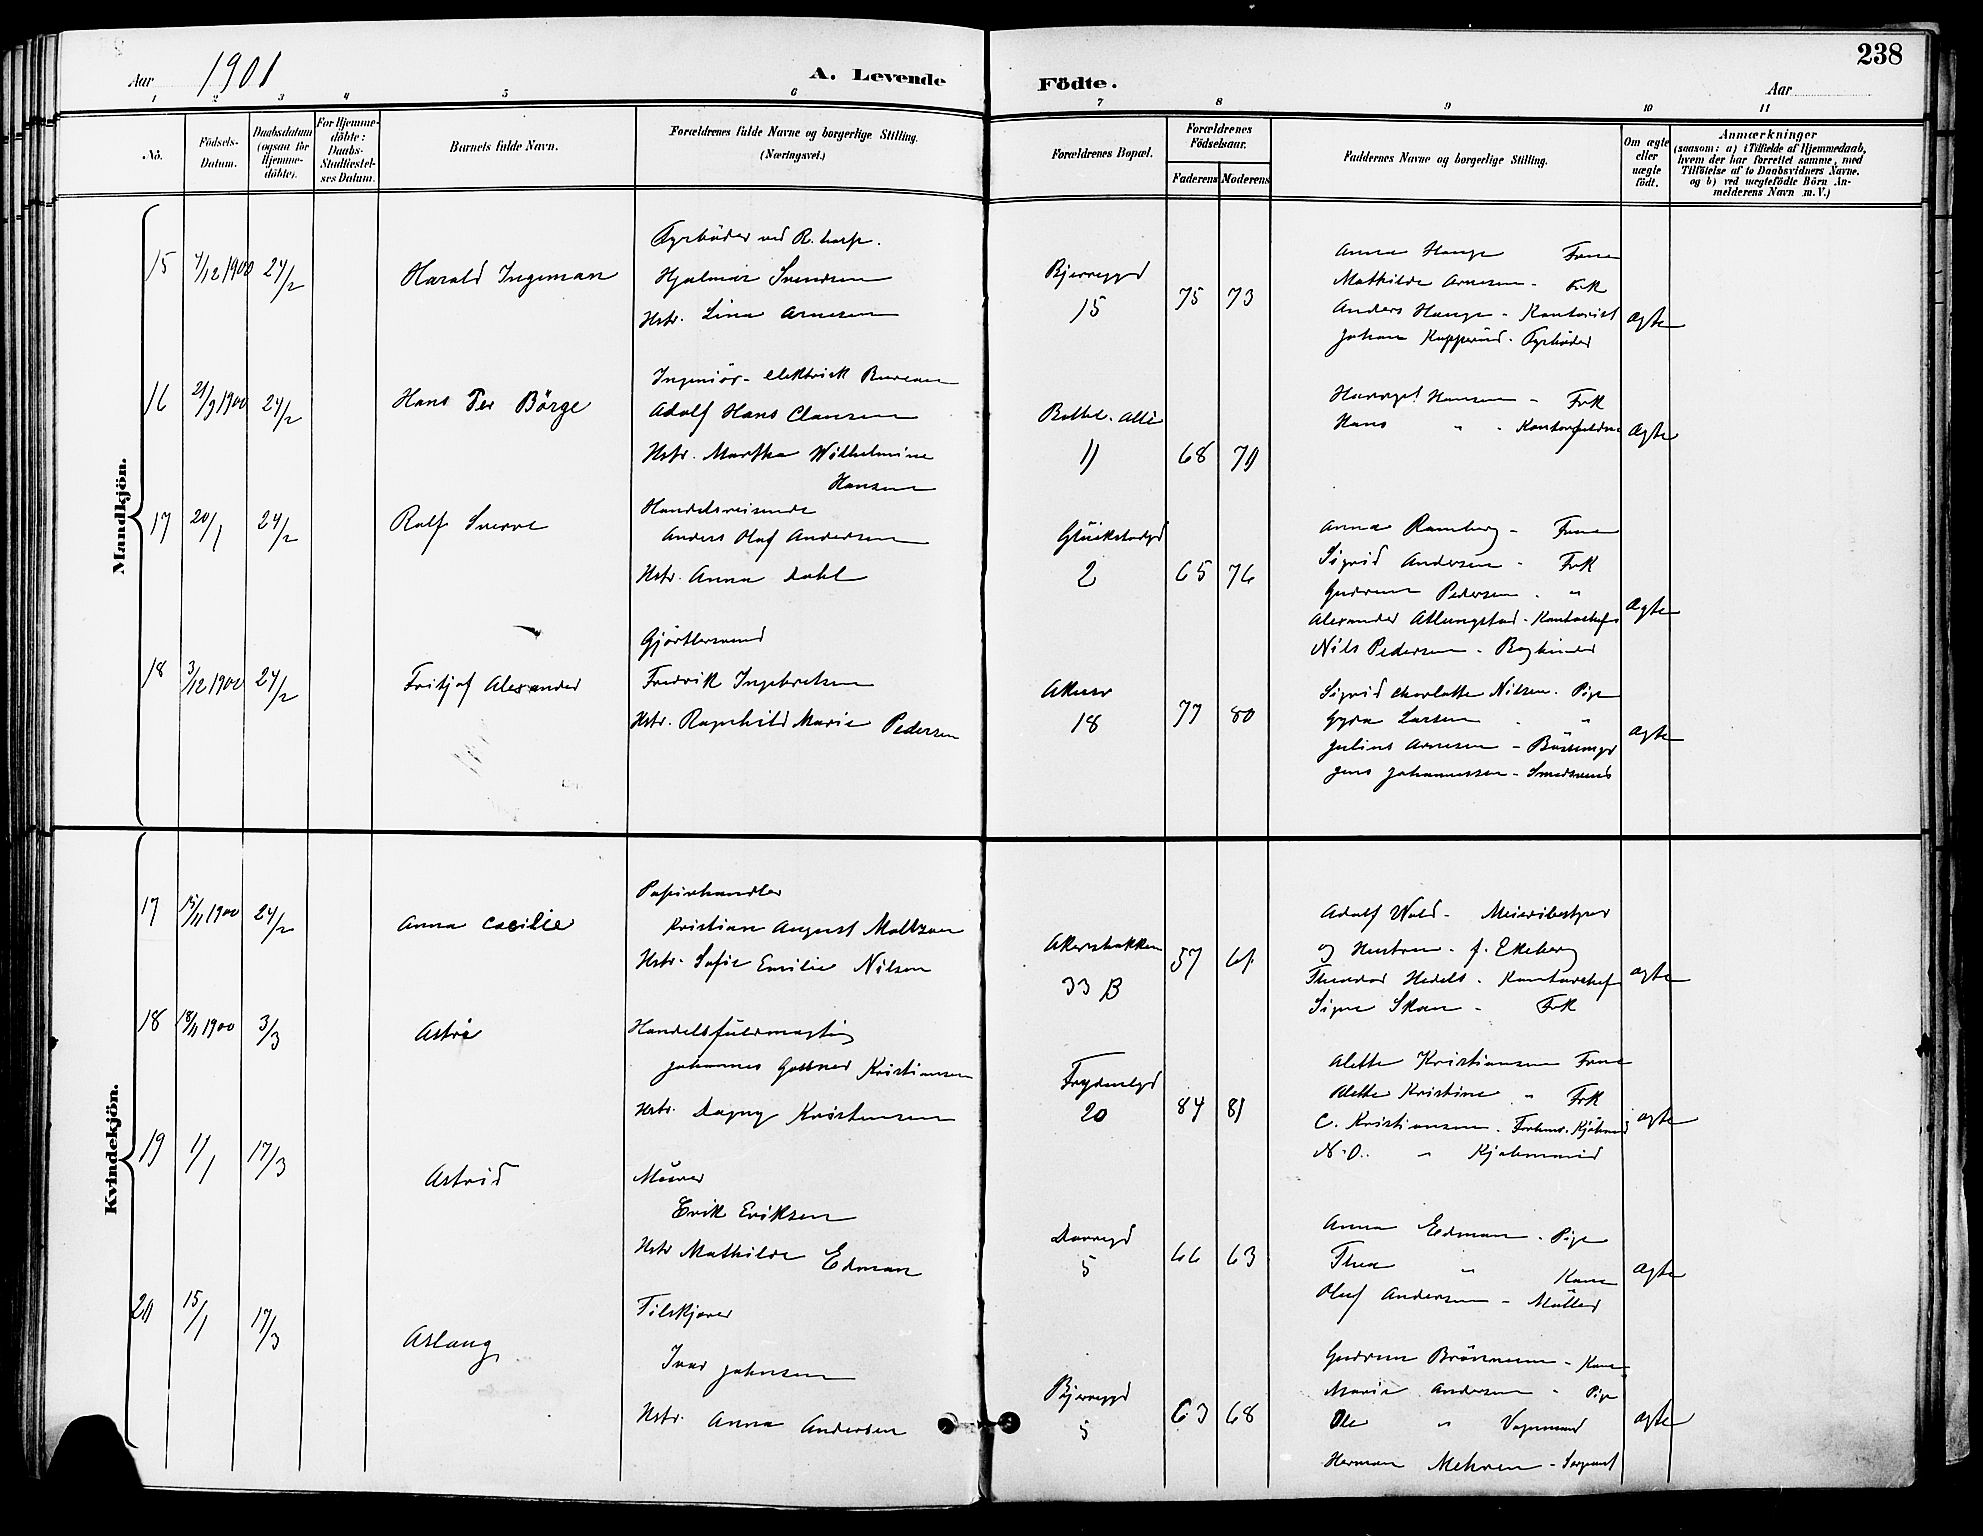 238
Aar 1901
A. Levende
Födte.
Aar
1 2 3 4 5 6 7 8 9 10 11
No.
Födsels-Datum.
Daabsdatum (ogsaa for Hjemme-döbte).
For Hjemme-döbte: Daabs-Stadfæstel-ses Datum.
Barnets fulde Navn.
Forældrenes fulde Navne og borgerlige Stilling. (Næringsvei.)
Forældrenes Bopæl.
Forældrenes Födselsaar.
Faderens Moderens
Faddernes Navne og borgerlige Stilling.
Om ægte eller uægte födt.
Anmærkninger
(saasom: a) i Tilfælde af Hjemmedaab,
hvem der har forrettet samme, med
Tilföielse af to Daabsvidners Navne.
og b) ved uægtefödte Börn An-
melderens Navn m.V.)
Mandkjön.
15 4/12 1900 24/2
Harald Ingeman
Fyrböder ved
Hjalmar Svendsen
Hstr. Lina Arnesen
Bjerregd
15
75 73
Anna Hauge Frue
Mathilde Arnesen - Frk
Anders Hauge - Kontorist
Johan - Fyrböder
ægte
16 21/9 1900 24/2
Hans Per Börge
Ingeniör - elektrisk Bureau
Adolf Hans Clausen
Hstr. Martha Wilhelmine
Hansen
11
68 70
Hansen - Frk
Hans " -
ægte
17 20/1 24/2
Rolf Sverre
Handelsreisende
Anders Olaf Andersen
Hstr. Anna Dahl
Glückstadgd
2
65 76
Anna Ramberg - Frue
Sigrid Andersen - Frk
Gudrun Pedersen - "
Alexander Atlungstad - Kontorchef
Nils Pedersen - Bogbinder
ægte
18 3/12 1900 24/2
Fritjof Alexander
Gjörtlersvend
Fredrik Ingebretsen
Hstr. Ragnhild Marie Pedersen
Akersv
18
77 80
Sigrid Charlotte Nilsen - Pige
Gyda Larsen - "
Julius Arnesen -
Jens Johannessen - Smedsvend
ægte
Kvindekjön.
17 15/11 1900 24/2
Anna Cæcilie
Papirhandler
Kristian August Maltzau
Hstr. Sofie Emilie Nilsen
Akersbakken
33 B
57 61
Adolf Wold - Meieribestyrer
og Hustru - f. Ekeberg
Theodor - Kontorchef
Signe Skau - Frk
ægte
18 18/11 1900 3/3
Astri
Handelsfuldmægtig
Johannes Kristiansen
Hstr. Dagny Kristensen
Frydenlgd
20
84 81
Alette Kristiansen Frue
Alette Kristine " Frk
C. Kristiansen -
N. O. " Kjöbmand
ægte
19 1/1 17/3
Astrid
Murer
Erik Eriksen
Hstr Mathilde Edman
Darregd
5
66 63
Anna Edman - Pige
Thea " Kone
Oluf Andersen - Möller
ægte
20 15/1 17/3
Aslaug
Filskjærer
Ivar Johnsen
Hstr. Anna Andersen
Bjerregd
5
63 68
Gudrun - Kone
Marie Andersen - Pige
Ole " Vognmand
Herman Mehren - Sergeant
ægte